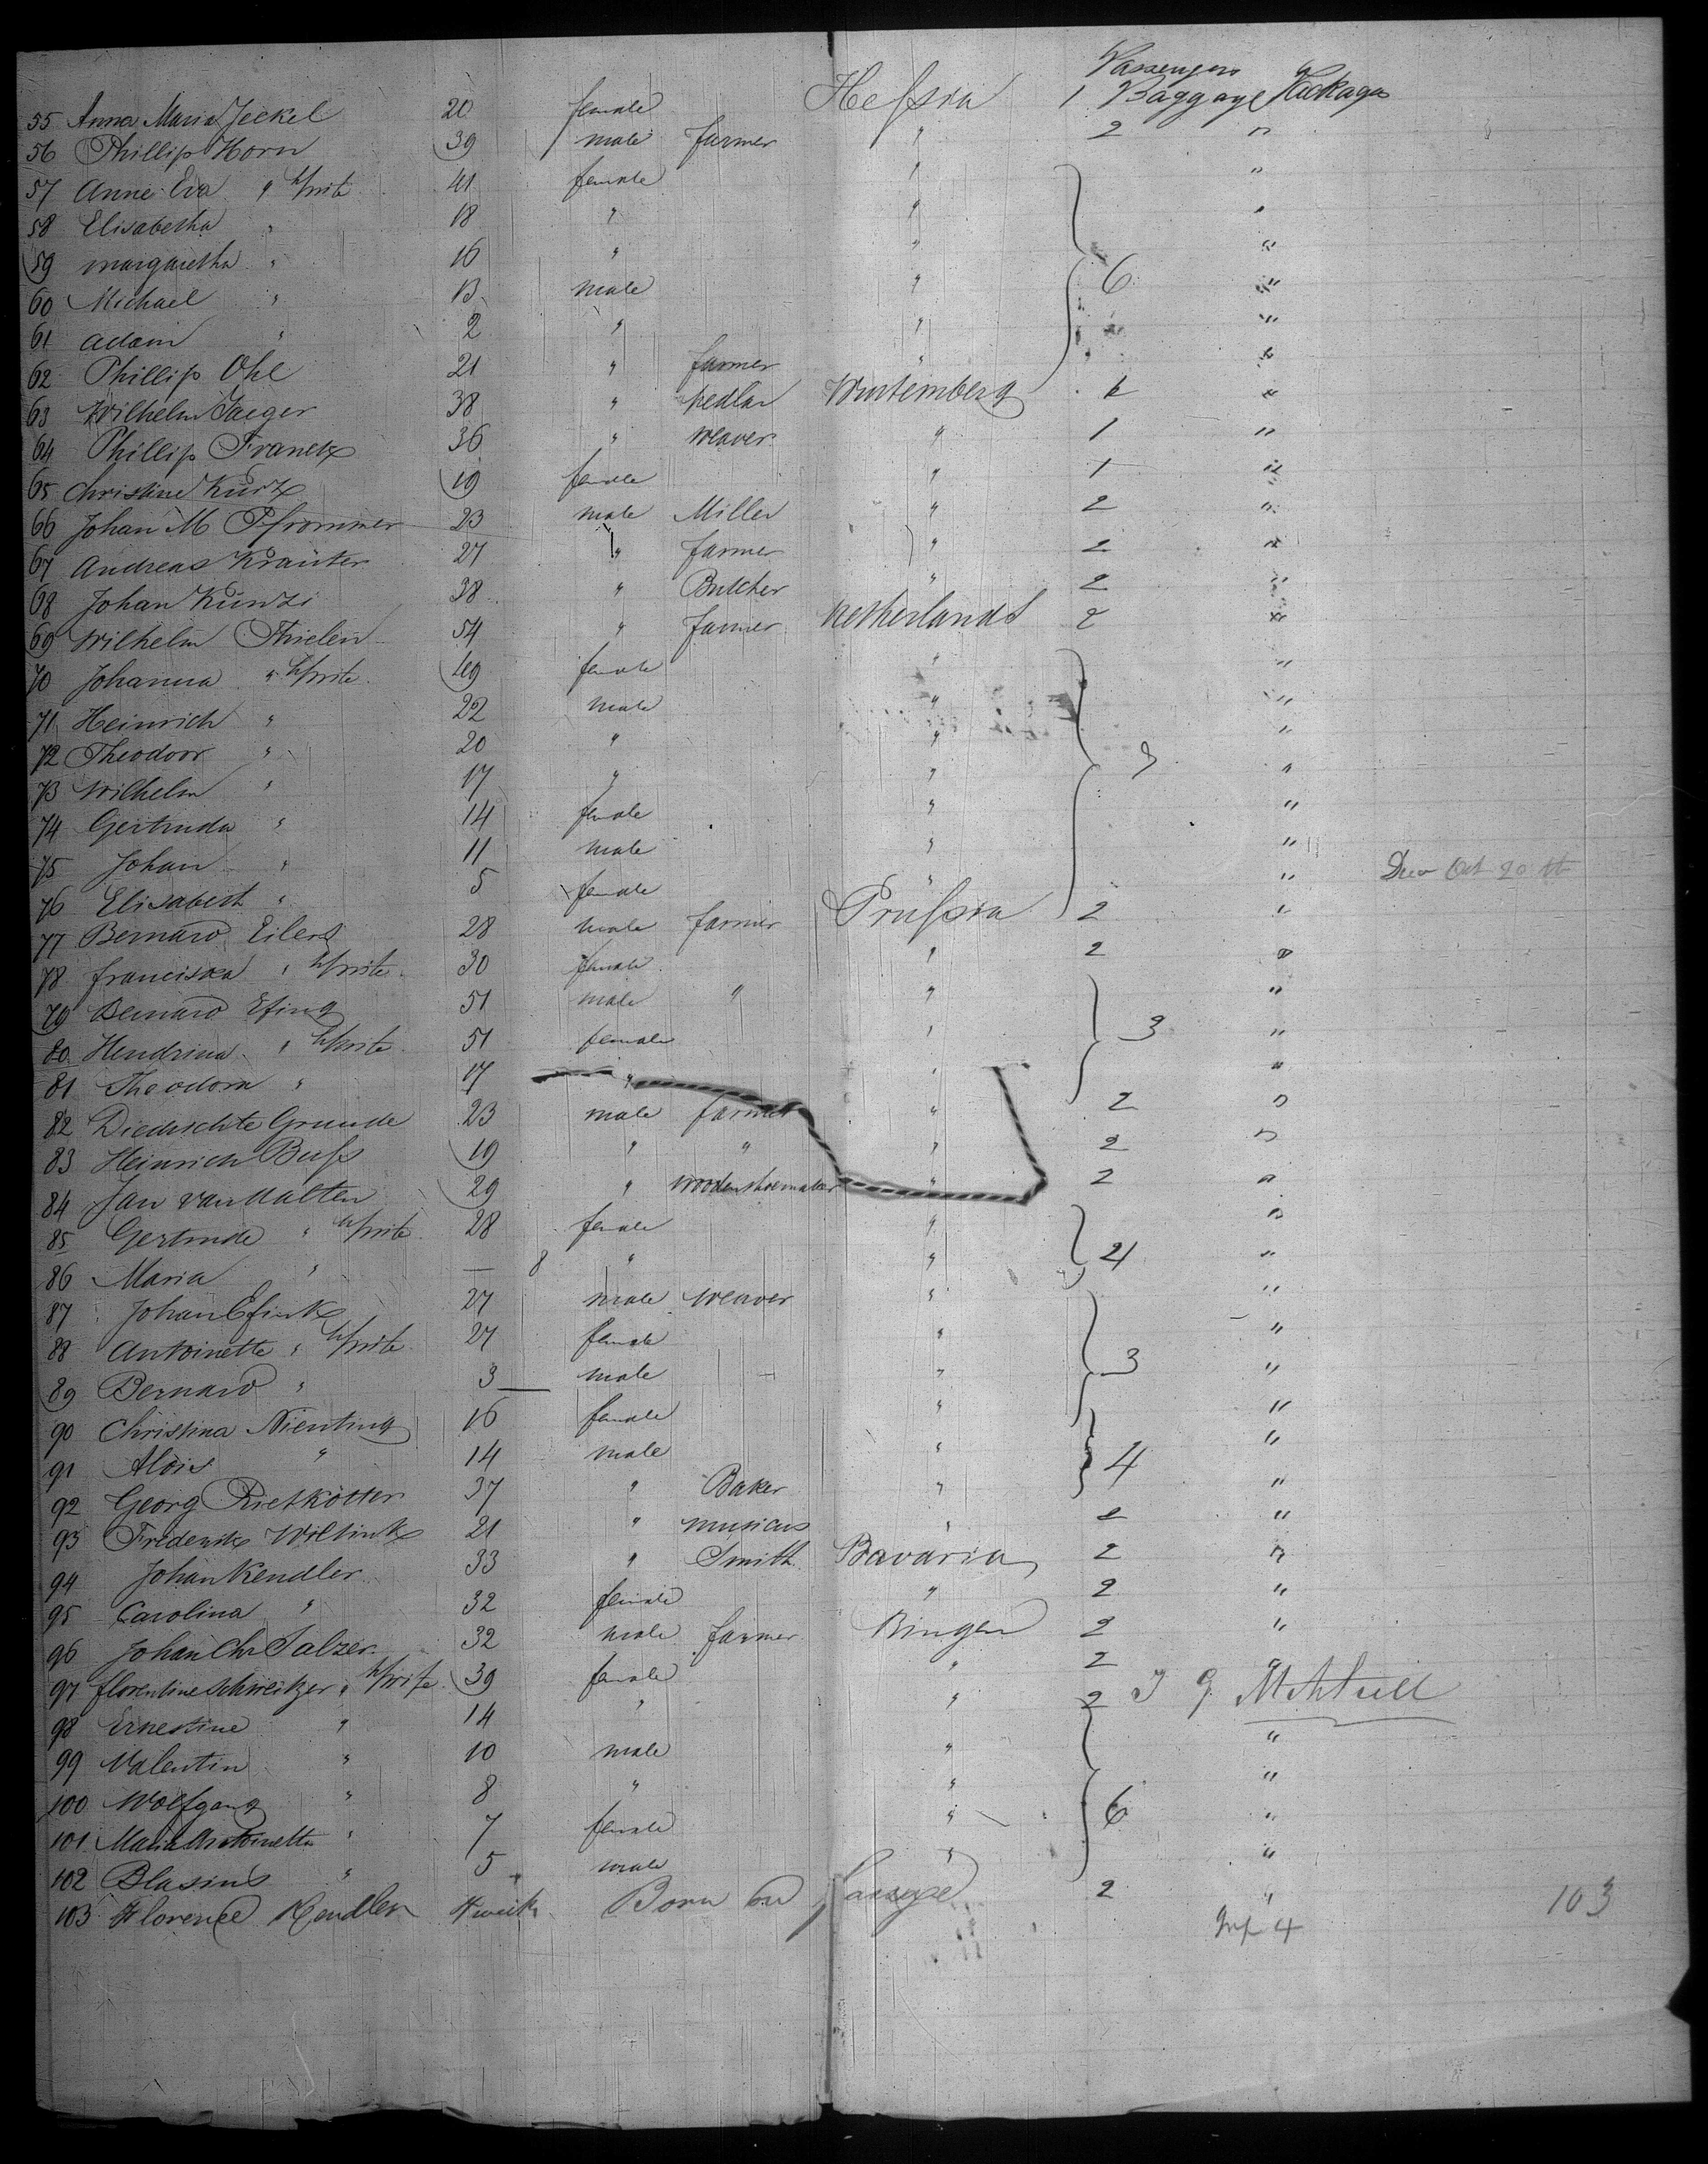 Passengers
55 Anna Maria Jeckel 20 female Hessia 1 Baggage Packages
56 Phillip Horn 39 male farmer " 2 "
57 Anne Eva " 41 female " "
58 Elisabetha " 18 " " "
59 margaretha " 16 " " "
60 Michael " 13 male " 6 "
61 adam " 2 " " "
62 Phillip Ohl 21 " farmer " "
63 Wilhelm Jaeger 38 " pedlar Wurtemberg "
64 Phillip Franck 36 " weaver " 1 "
65 Christine Kürtz 19 female " 1 "
66 Johan M Pfrommer 23 male Miller " 2 "
67 Andreas Kräuter 27 " farmer " 2 "
68 Johan Künzi 38 " Butcher " 2 "
69 Wilhelm Thielen 54 " farmer Netherlands 2 "
70 Johanna " 49 female " "
71 Heinrich " 22 male " "
72 Theodoor " 20 " " "
73 Wilhelm " 17 " " "
74 Gertruda " 14 female " "
75 Johan " 11 male " "
76 Elisabeth " 5 female " " Oct 20
77 Bernard Eilers 28 male farmer Prussia 2 "
78 franciska " 30 female " 2 "
79 Bernard Efing 51 male " " "
80 Hendrina " 51 female " 3 "
81 Theodora " 17 " " "
82 Diedrichte Grunde 23 male farmer " 2 "
83 Heinrich Buss 19 " " " 2 "
84 Jan van Aalten 29 " woodenshoemaker " 2 "
85 Gertrude " 28 female " "
86 Maria " — 8 " " 4 "
87 Johan Efink 27 male weaver " "
88 Antoinette " 27 female " "
89 Bernard " 3 male " 3 "
90 Christina Nienting 16 female " "
91 Alois " 14 male " 4 "
92 Georg Rietkötter 37 " Baker " "
93 Frederik Wiltink 21 " musicus " 2 "
94 Johan Kendler 33 " Smith Bavaria 2 "
95 Carolina " 32 female " 2 "
96 Johan Chr Salzer 32 male farmer Bingen 2 "
97 florentine Schweitzer " wife 39 female " 2 "
98 Ernestine " 14 " " 2
99 Valentin " 10 male " "
100 Wolfgang " 8 " " "
101 Maria Antoinette " 7 female " 6 "
102 Blasius " 5 male " "
103 Florence Kendler Born on passage 2 " 103
Inf 4